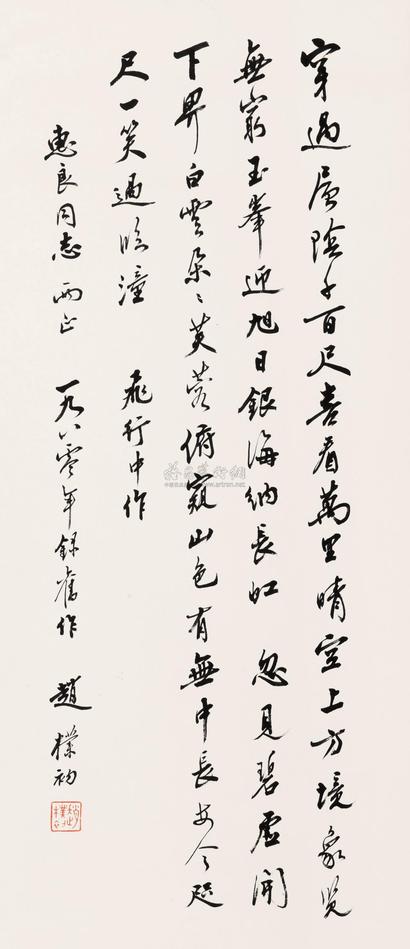 穿過層陰千百尺喜看萬里晴空上方境象覽
無窮玉峯迎旭日銀海納長虹　忽見碧虛開
下界白雲朵〻芙蓉俯窺山色有無中長安今咫
尺一笑過臨潼　飛行中作
惠良同志兩正　一九八零年錄舊作　趙樸初